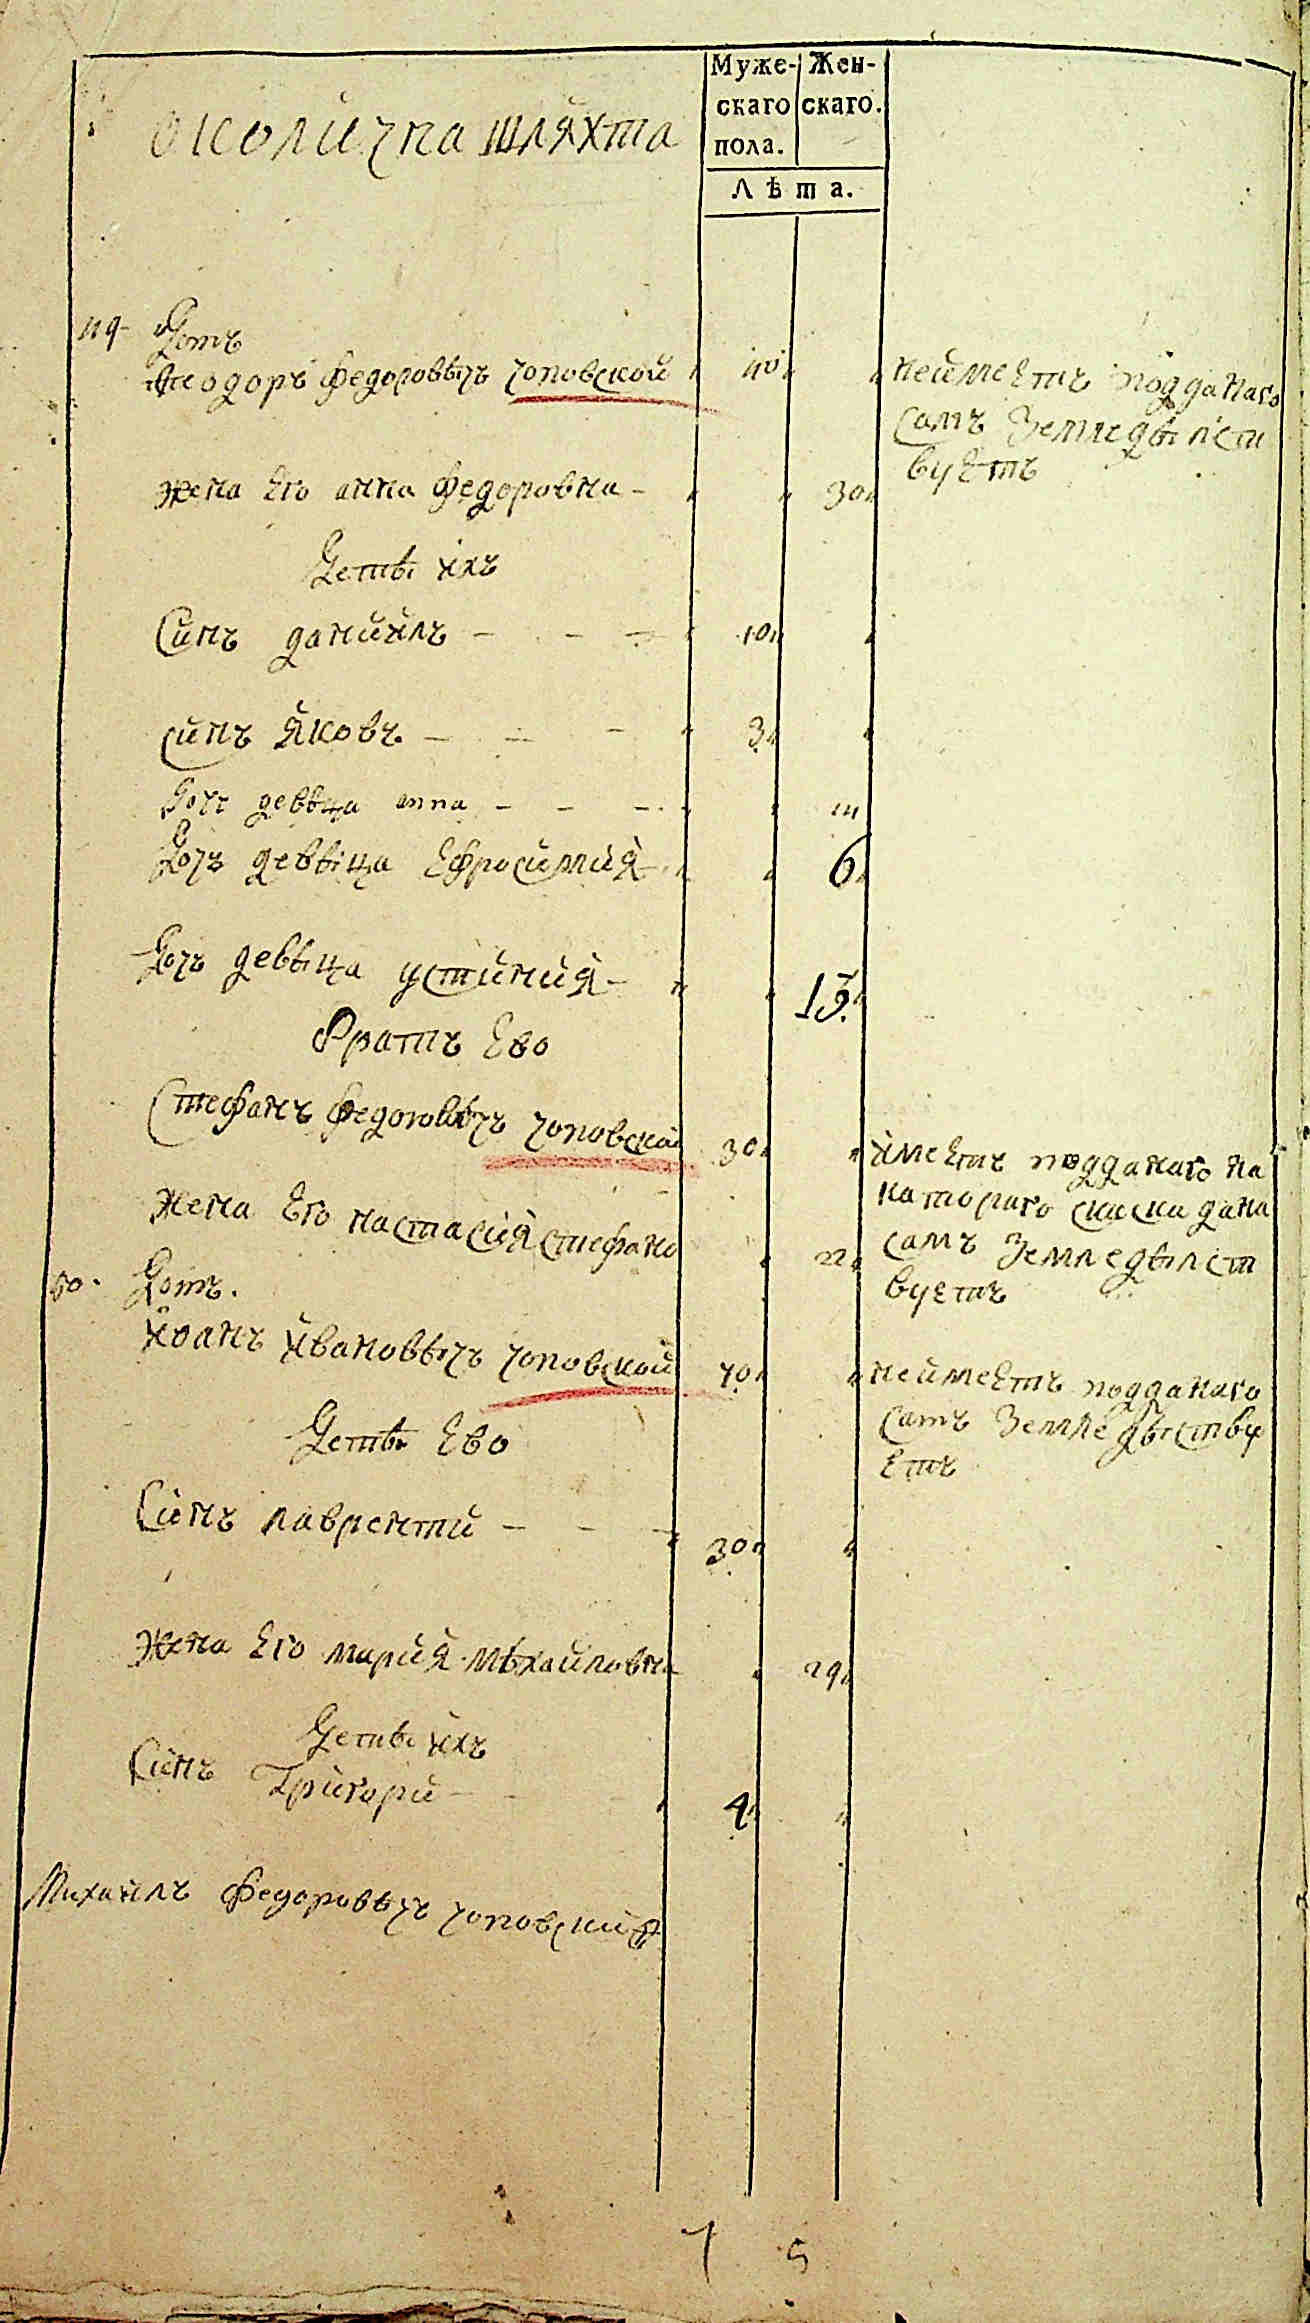 Муже- Жен-
скаго скаго.
пола.
Лѣта.
околична шляхта
49 Домъ
Феодоръ Федоровѣчъ Чоповской 40
неймѣетъ подданаго
самъ Земледѣлст
вуетъ
жена Его анна Федоровна - 30
Детѣ ихъ
Синъ данийлъ - - - 10
синъ Яковъ - - - 3
Дочъ девѣца анна - - -
Дочъ девѣца Ефросимия 6
Дочъ девѣца устиния - 13
Братъ Ево
Стефанъ Федоровѣчъ Чоповской 30
ймѣетъ подданаго на
каторого скаска дана
самъ Земледѣлст
вуетъ
жена Его настасия стефано 22
50. Домъ.
Йоанъ Йвановѣчъ Чоповской 70
неймѣетъ подданаго
самъ Земледѣлству
Етъ
Детѣ Ево
Синъ лаврентий - - - 30
жена Его мария Мѣхайловна 29
Детѣ ихъ
Синъ Григорий - 4
Михайлъ Федоровѣчъ Чоповский
7 5